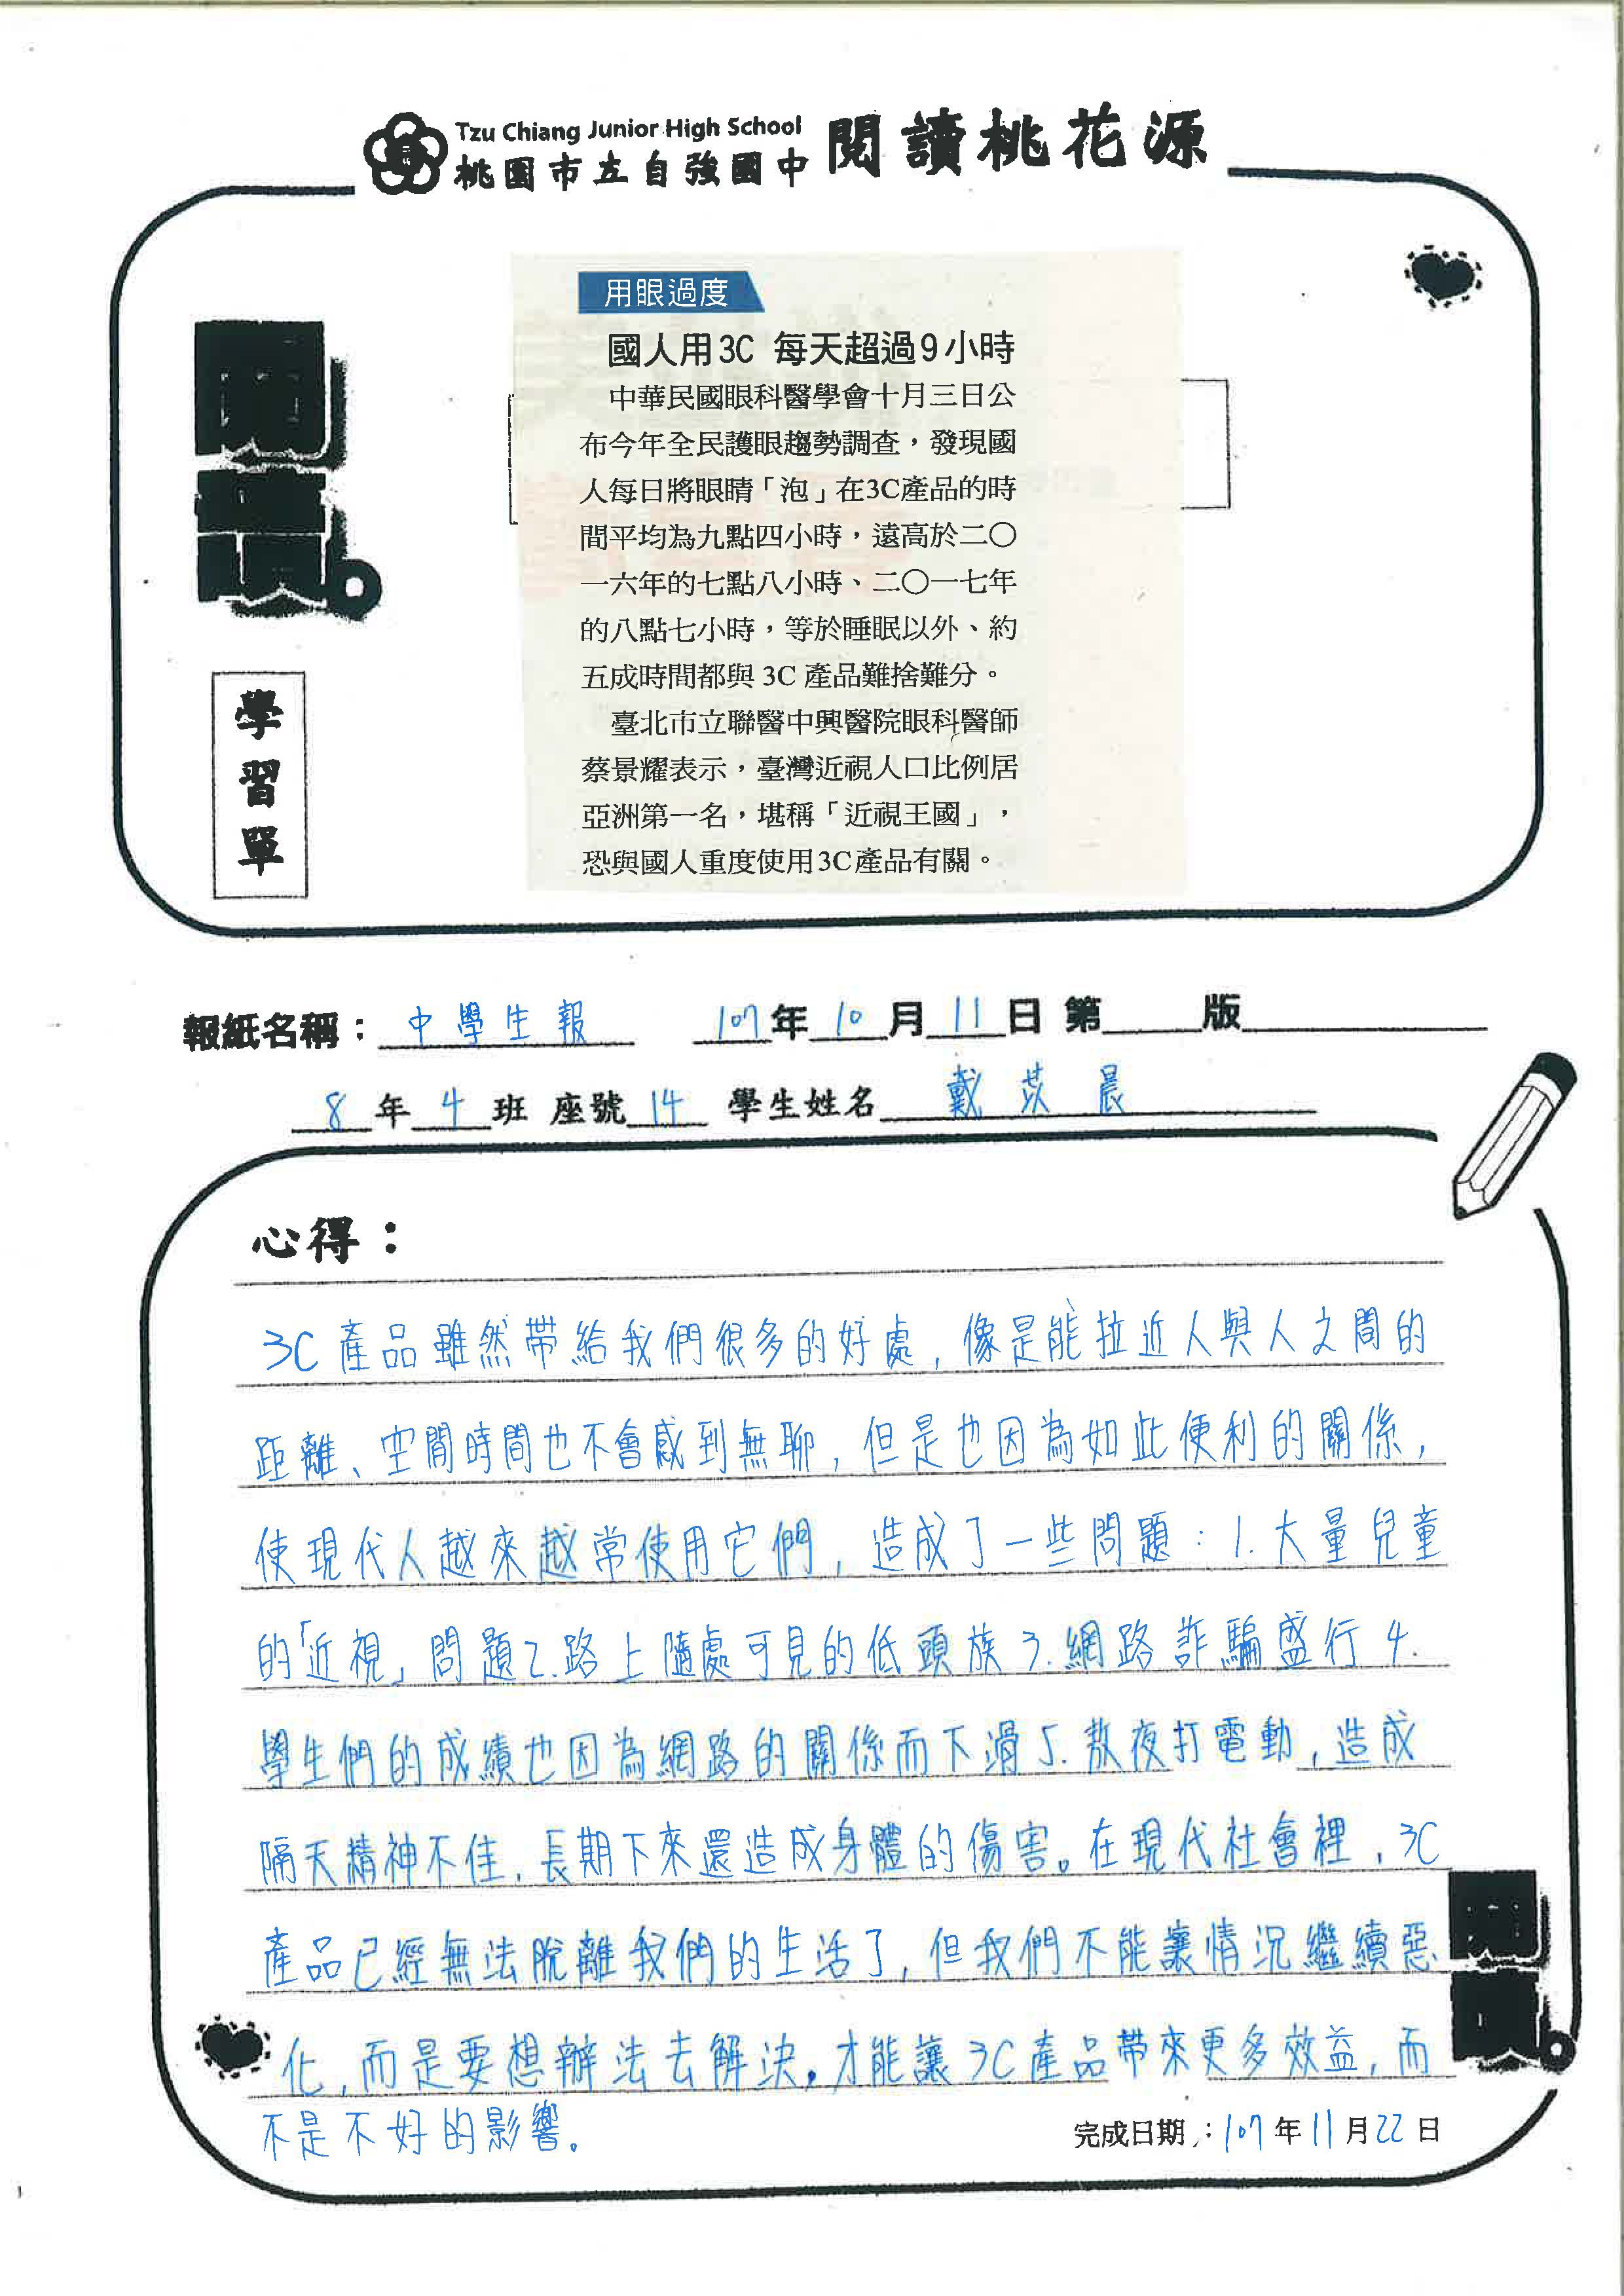 Tzu Chiang Junior High School
桃園市立自強國中 閱讀桃花源
用眼過度
國人用3C 每天超過9小時
中華民國眼科醫學會十月三日公
布今年全民護眼趨勢調查，發現國
人每日將眼睛「泡」在3C產品的時
間平均為九點四小時，遠高於二〇
一六年的七點八小時、二〇一七年
的八點七小時，等於睡眠以外、約
五成時間都與3C產品難捨難分。
臺北市立聯醫中興醫院眼科醫師
蔡景耀表示，臺灣近視人口比例居
亞洲第一名，堪稱「近視王國」，
恐與國人重度使用3C產品有關。
閱讀。
學習單
報紙名稱：中學生報 107年10月11日 第 版
8年4班 座號14 學生姓名 戴苡晨
心得：
3C產品雖然帶給我們很多的好處，像是能拉近人與人之間的
距離、空閒時間也不會感到無聊，但是也因為如此便利的關係，
使現代人越來越常使用它們，造成了一些問題：1.大量兒童
的「近視」問題2.路上隨處可見的低頭族3.網路詐騙盛行4.
學生們的成績也因為網路的關係而下滑5.熬夜打電動，造成
隔天精神不佳，長期下來還造成身體的傷害。在現代社會裡，3C
產品已經無法脫離我們的生活了，但我們不能讓情況繼續惡
化，而是要想辦法去解決，才能讓3C產品帶來更多效益，而
不是不好的影響。
閱讀。
完成日期：107年11月22日